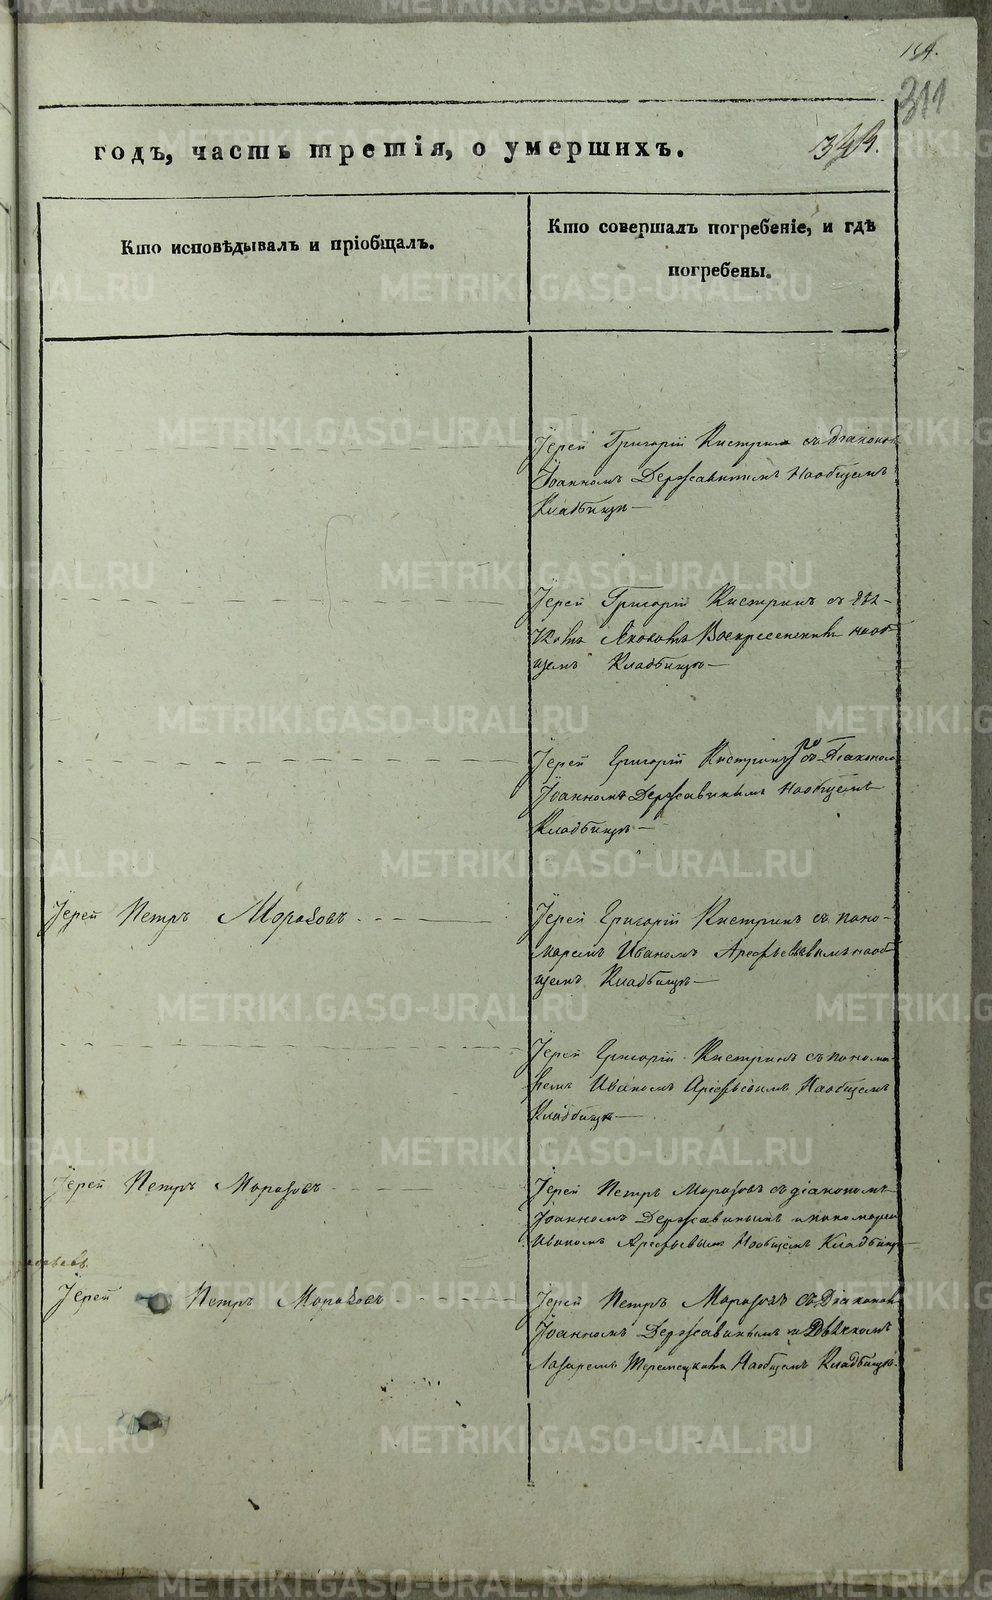 311
годъ, часть третія, о умершихъ.
Кто исповѣдывалъ и пріобщалъ.
Кто совершалъ погребеніе, и гдѣ
погребены.
Іерей Григорій Кистринъ съ діакономъ
Іоанномъ Державинымъ наобщемъ
Кладбищѣ —
Іерей Григорій Кистринъ съ дья-
Воскресенскимъ наоб
щемъ Кладбищѣ —
Іерей Григорій Кистринъ со Діакономъ
Іоанномъ Державинымъ наобщемъ
Кладбищѣ —
Іерей Петръ Морозовъ
Іерей Григорій Кистринъ съ поно-
маремъ Иваномъ Арефьевымъ наоб
щемъ Кладбищѣ —
Іерей Григорій Кистринъ съ понома-
ремъ Иваномъ Арефьевымъ Наобщемъ
Кладбищѣ —
Іерей Петръ Морозовъ
Іерей Петръ Морозовъ съ діакономъ
Іоанномъ Державинымъ и пономаремъ
Иваномъ Арефьевымъ Наобщемъ Кладбищѣ
Іерей Петръ Морозовъ
Іерей Петръ Морозовъ съ Діакономъ
Іоанномъ Державинымъ и Дьячкомъ
Лазаремъ Наобщемъ Кладбищѣ.
METRIKI.GASO-URAL.RU